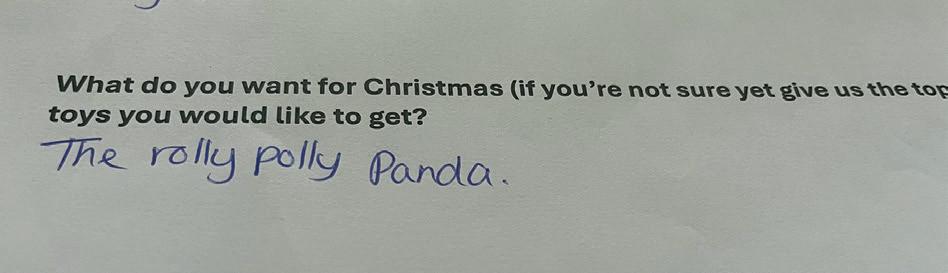 What do you want for Christmas (if you're not sure yet give us the top
toys you would like to get?
The rolly polly Panda.